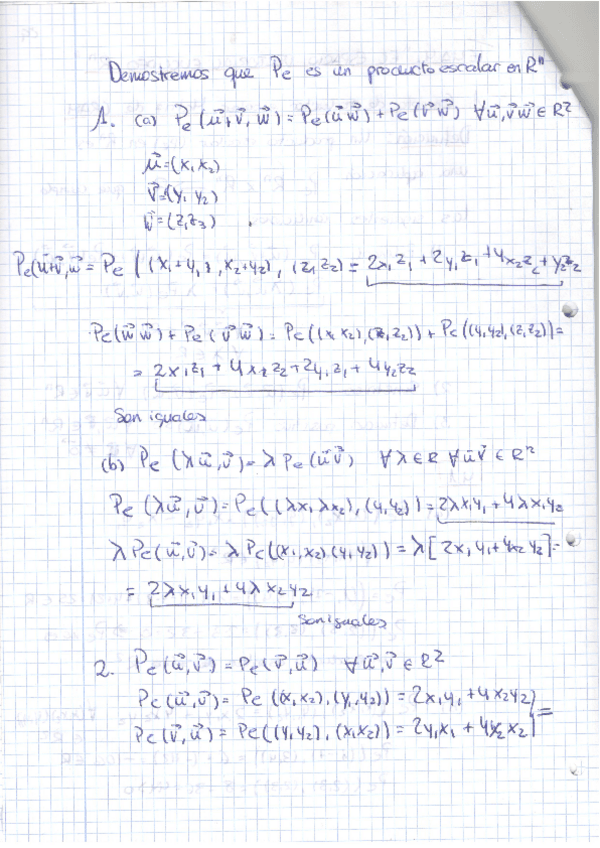 Demostremos que Pe es un producto escalar en Rⁿ
1. (a) Pe(u⃗+v⃗, w⃗) = Pe(u⃗ w⃗) + Pe(v⃗ w⃗) ∀u⃗, v⃗ w⃗ ∈ R²
u⃗=(x₁ x₂)
v⃗=(y₁ y₂)
w⃗=(z₁ z₃)
Pe(u⃗+v⃗, w⃗ = Pe ((x₁+y₁), x₂+y₂), (z₁ z₂) = 2x₁z₁ + 2y₁z₁ + 4x₂z₂ + y₂z₂
Pe(u⃗ w⃗) + Pe(v⃗ w⃗) = Pe((x₁ x₂), (z₁ z₂)) + Pe((y₁ y₂), (z₁ z₂)) =
= 2x₁z₁ + 4x₂z₂ + 2y₁z₁ + 4y₂z₂
Son iguales
(b) Pe(λu⃗, v⃗) = λPe(u⃗ v⃗) ∀λ∈R ∀u⃗ v⃗ ∈ R²
Pe(λu⃗, v⃗) = Pe((λx₁, λx₂), (y₁ y₂)) = 2λx₁y₁ + 4λx₁y₂
λPe(u⃗, v⃗) = λPe((x₁, x₂) (y₁ y₂)) = λ[2x₁y₁ + 4x₂y₂] =
= 2λx₁y₁ + 4λx₂y₂
Son iguales
2. Pe(u⃗, v⃗) = Pe(v⃗, u⃗) ∀u⃗, v⃗ ∈ R²
Pe(u⃗, v⃗) = Pe((x₁ x₂), (y₁, y₂)) = 2x₁y₁ + 4x₂y₂
Pe(v⃗, u⃗) = Pe((y₁ y₂), (x₁ x₂)) = 2y₁x₁ + 4y₂x₂ =